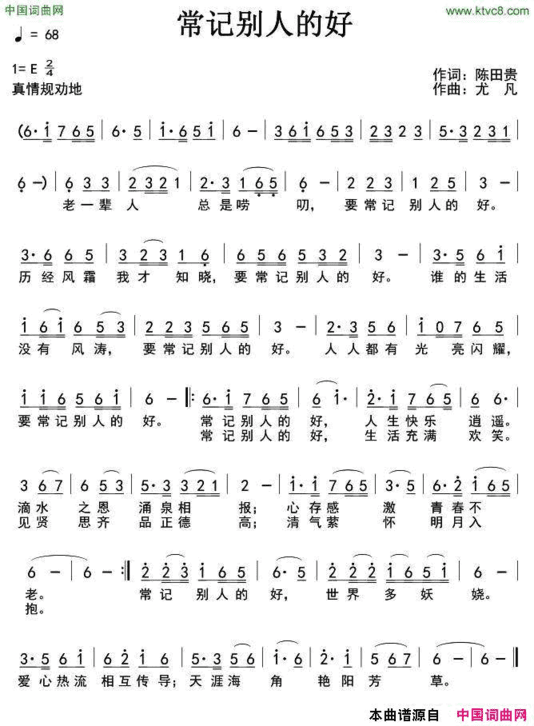 中国词曲网
常记别人的好
www.ktvc8.com
♩= 68
1= E 2/4
真情规劝地
作词：陈田贵
作曲：尤 凡
(6· i 7 6 5 | 6· 5 | i· 6 5 i | 6 － | 3 6 i 6 5 3 | 2 3 2 3 | 5· 3 2 3 1 |
6 －) | 6 3 3 | 2 3 2 1 | 2· 3 1 6 5 | 6 － | 2 2 3 | 1 2 5 | 3 － |
老 一 辈 人 总 是 唠 叨， 要 常 记 别 人 的 好。
3· 6 6 5 | 3 2 3 1 6 | 6 5 6 5 3 2 | 3 － | 3· 5 6 i |
历 经 风 霜 我 才 知 晓， 要 常 记 别 人 的 好。 谁 的 生 活
i 6 i 6 5 3 | 2 2 3 5 6 5 | 3 － | 2· 3 5 6 | i 0 7 6 5 |
没 有 风 涛， 要 常 记 别 人 的 好。 人 人 都 有 光 亮 闪 耀，
i i 6 5 6 i | 6 － ‖: 6· i 7 6 5 | 6 i· | 2· i 7 6 5 | 6 6· |
要 常 记 别 人 的 好。 常 记 别 人 的 好， 人 生 快 乐 逍 遥。
常 记 别 人 的 好， 生 活 充 满 欢 笑。
3 6 7 | 6 5 3 | 5· 3 3 2 1 | 2 － | i· i 7 6 5 | 3 5· | 6· 2 i 6 5 |
滴 水 之 恩 涌 泉 相 报； 心 存 感 激 青 春 不
见 贤 思 齐 品 正 德 高； 清 气 萦 怀 明 月 入
6 － | 6 － :‖ 2 2 3 i 6 5 | 6· 5 | 2 2 2 i 6 5 i | 6 － |
老。 常 记 别 人 的 好， 世 界 多 妖 娆。
抱。
3· 5 6 i | 6 2 i 6 | 5· 3 5 6 | i 6 i 2 | 3 i 6 | 6 － | 6 － ‖
爱 心 热 流 相 互 传 导； 天 涯 海 角 艳 阳 芳 草。
本曲谱源自 中国词曲网